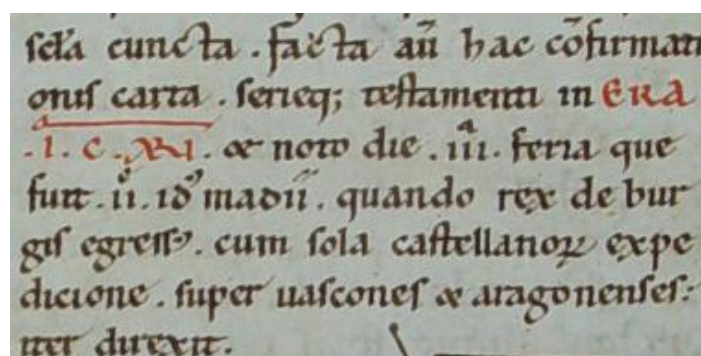 scła cuncta . facta aū hac cōfirmati
onis carta . serieq; testamenti in ERA
. I . C . . & noto die . iii^a . feria que
fuit . ii^o . id⁹ madii . quando rex de bur
gis egress⁹ . cum sola castellanoꝝ expe
dicione . super uascones & aragonenses.
iter direxit.